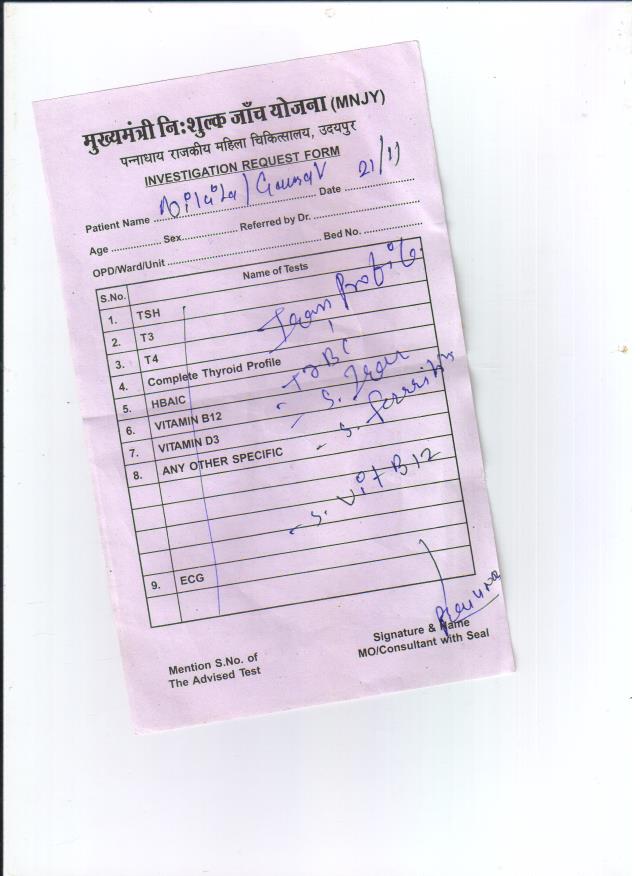 मुख्यमंत्री निःशुल्क जाँच योजना (MNJY)
पन्नाधाय राजकीय महिला चिकित्सालय, उदयपुर
INVESTIGATION REQUEST FORM
Patient Name ........ Date 21/11
Age ............... Sex................. Referred by Dr. .................
OPD/Ward/Unit ................. Bed No. .................
S.No. Name of Tests
1. TSH
2. T3
3. T4
4. Complete Thyroid Profile
5. HBAIC
6. VITAMIN B12
7. VITAMIN D3
8. ANY OTHER SPECIFIC
Iron Profile
- TIBC
- S. Iron
- S. Ferritin
- S. Vit B12
9. ECG
Signature & Name
MO/Consultant with Seal
Mention S.No. of
The Advised Test